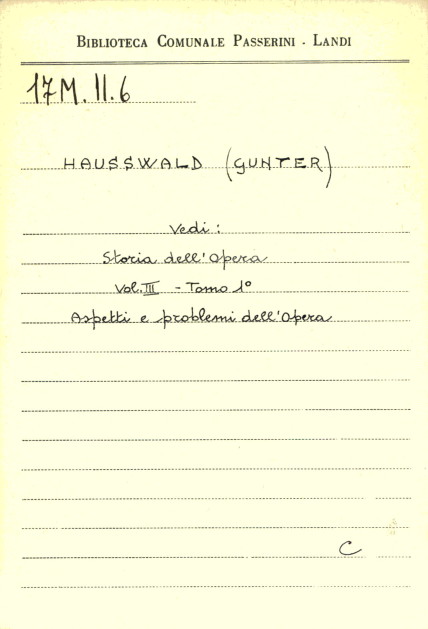 BIBLIOTECA COMUNALE PASSERINI - LANDI
17M.II.6
HAUSSWALD (GUNTER)
Vedi:
Storia dell'Opera
Vol. III - Tomo 1°
Aspetti e problemi dell'Opera
C